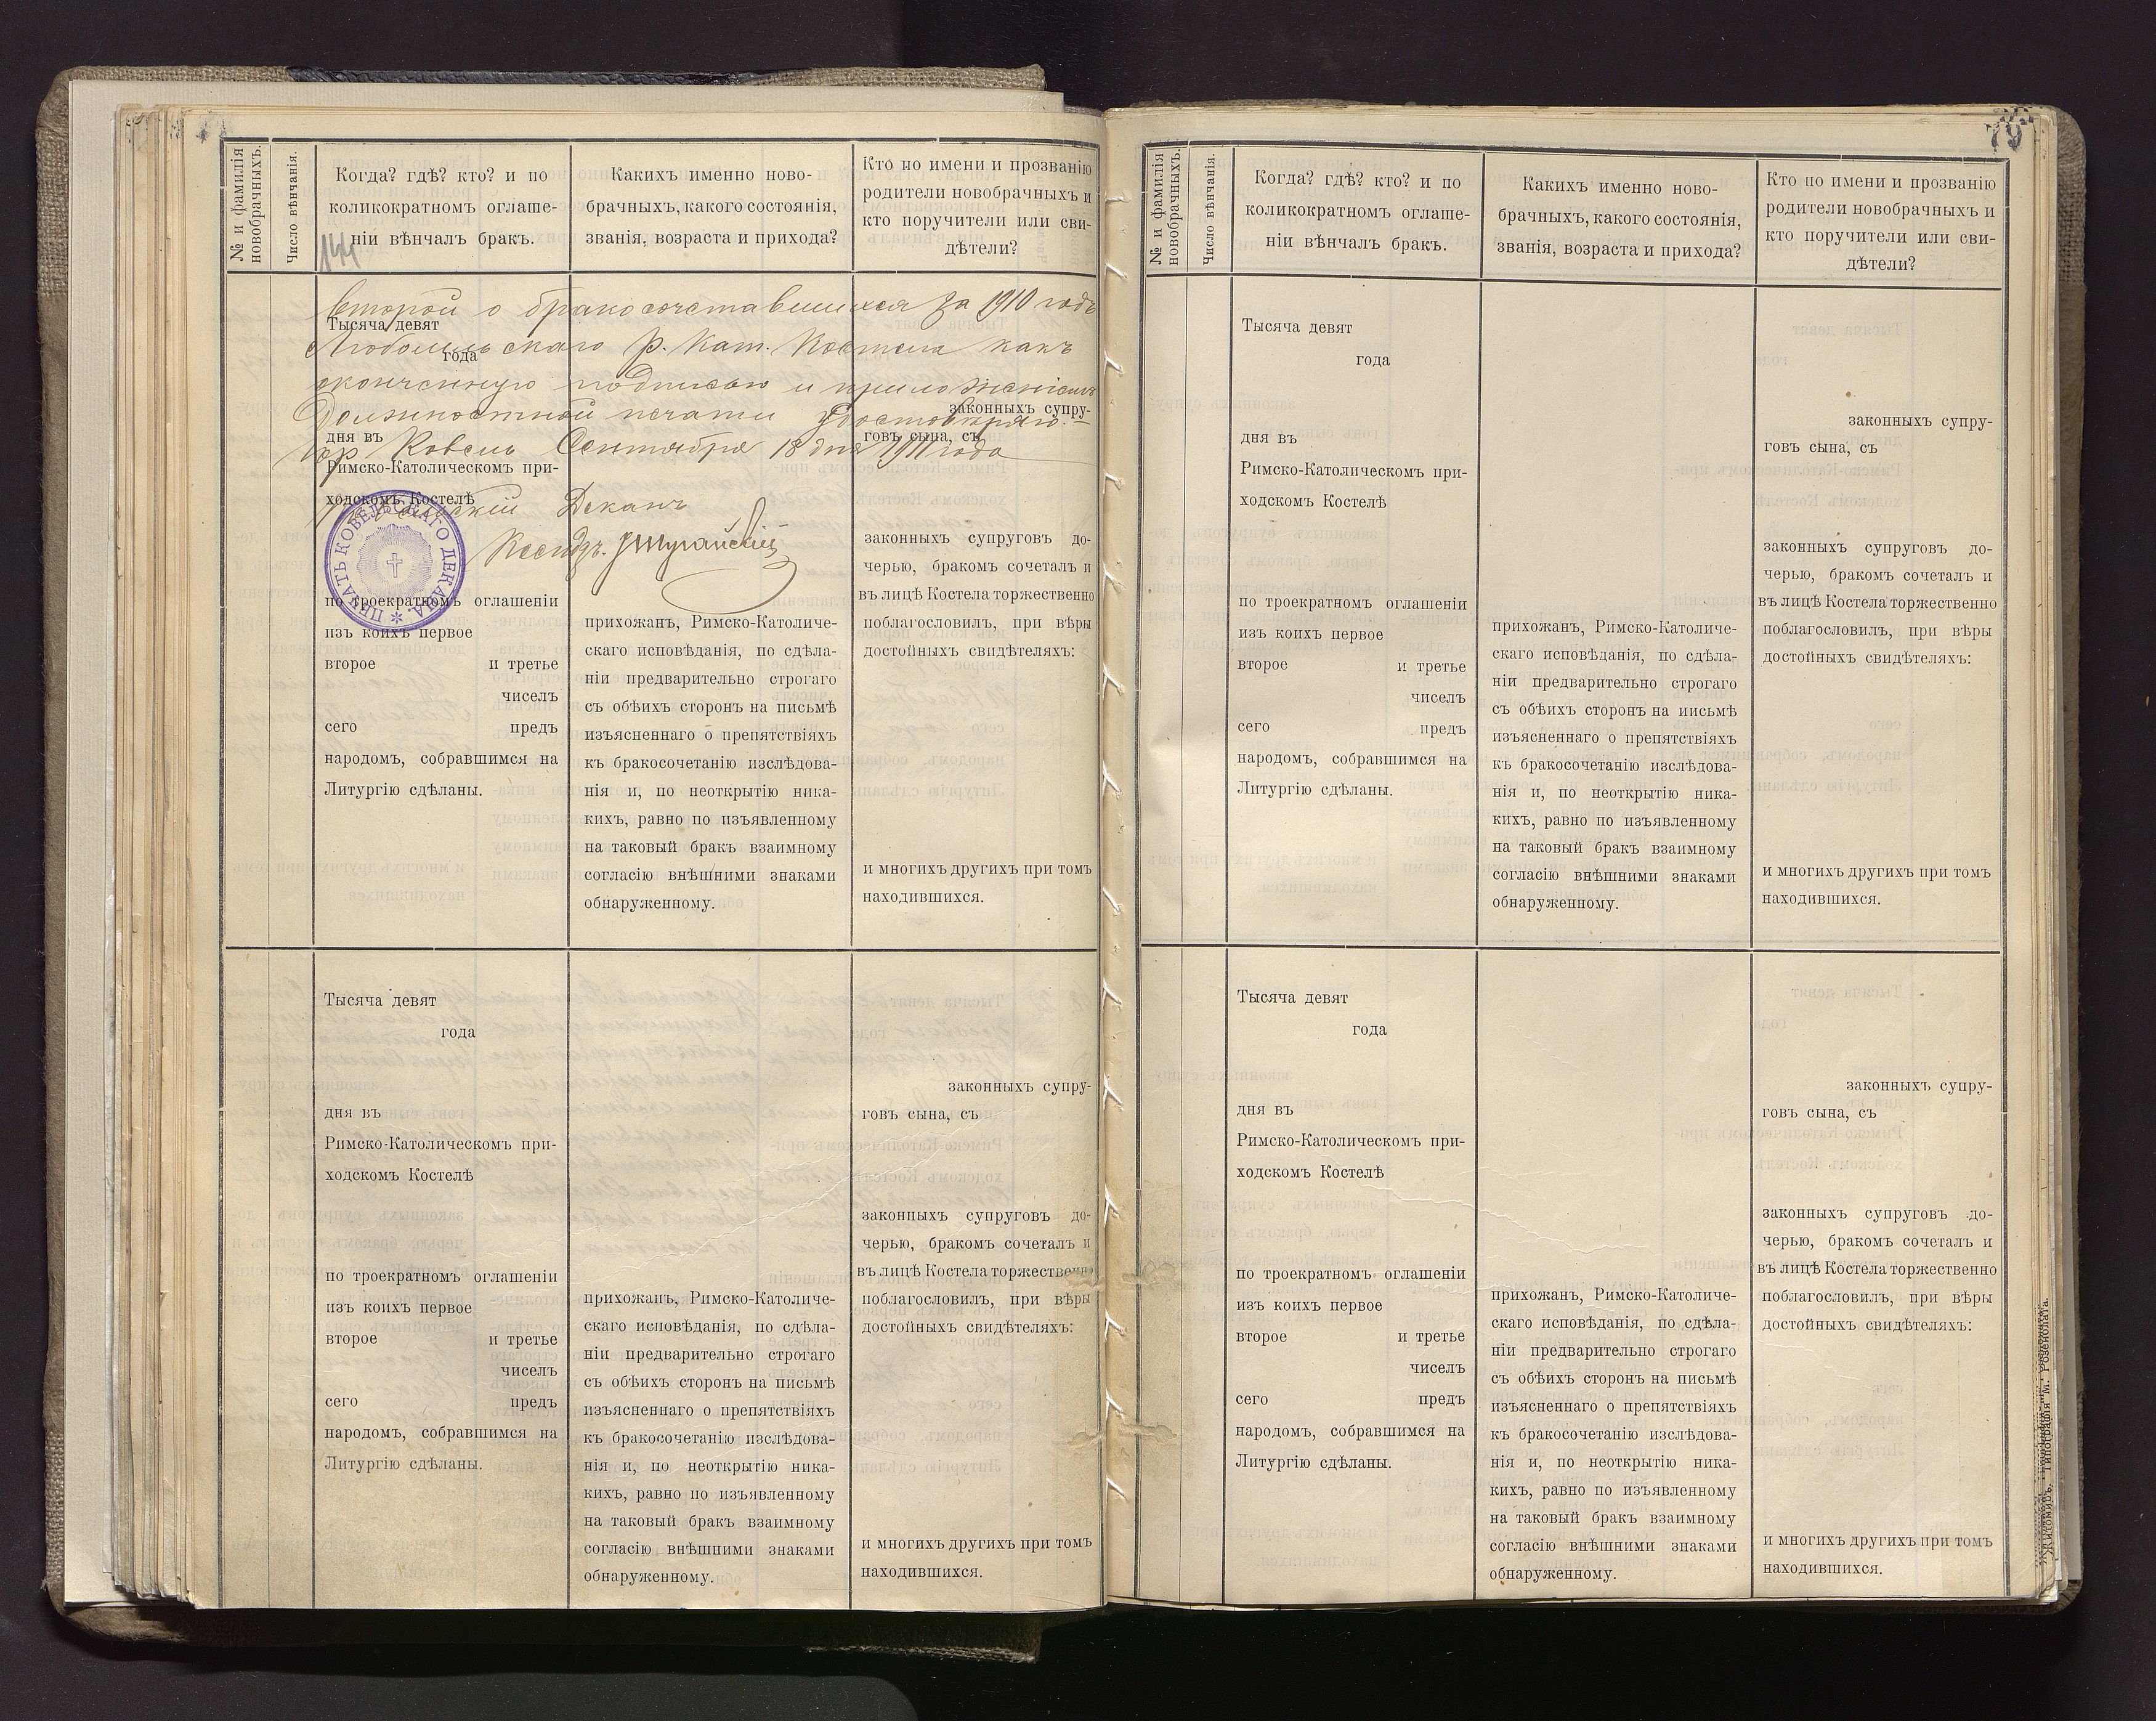 79
№ и фамилія новобрачныхъ.
Число вѣнчанія.
Когда? гдѣ? кто? и по
коликократномъ оглаше-
ніи вѣнчалъ бракъ.
144
Какихъ именно ново-
брачныхъ, какого состоянія,
званія, возраста и прихода?
Кто по имени и прозванію
родители новобрачныхъ и
кто поручители или сви-
дѣтели?
Второй о бракосочетавшихся за 1910 годъ
Любомльскаго Р. Кат. Костела какъ
оконченную подписью и приложеніемъ
Должностной печати удостовѣряю.
гор Ковель Сентября 18 дня 1911 года
Деканъ
Ксендзъ
ПЕЧАТЬ КОВЕЛЬСКАГО ДЕКАНА.
Тысяча девят
года
дня въ
Римско-Католическомъ при-
ходскомъ Костелѣ
по троекратномъ оглашеніи
изъ коихъ первое
второе и третье
чиселъ
сего предъ
народомъ, собравшимся на
Литургію сдѣланы.
прихожанъ, Римско-Католиче-
скаго исповѣданія, по сдѣла-
ніи предварительно строгаго
съ обѣихъ сторонъ на письмѣ
изъясненнаго о препятствіяхъ
къ бракосочетанію изслѣдова-
нія и, по неоткрытію ника-
кихъ, равно по изъявленному
на таковый бракъ взаимному
согласію внѣшними знаками
обнаруженному.
законныхъ супру-
говъ сына, съ
законныхъ супруговъ до-
черью, бракомъ сочеталъ и
въ лицѣ Костела торжественно
поблагословилъ, при вѣры
достойныхъ свидѣтеляхъ:
и многихъ другихъ при томъ
находившихся.
Тысяча девят
года
дня въ
Римско-Католическомъ при-
ходскомъ Костелѣ
по троекратномъ оглашеніи
изъ коихъ первое
второе и третье
чиселъ
сего предъ
народомъ, собравшимся на
Литургію сдѣланы.
прихожанъ, Римско-Католиче-
скаго исповѣданія, по сдѣла-
ніи предварительно строгаго
съ обѣихъ сторонъ на письмѣ
изъясненнаго о препятствіяхъ
къ бракосочетанію изслѣдова-
нія и, по неоткрытію ника-
кихъ, равно по изъявленному
на таковый бракъ взаимному
согласію внѣшними знаками
обнаруженному.
законныхъ супру-
говъ сына, съ
законныхъ супруговъ до-
черью, бракомъ сочеталъ и
въ лицѣ Костела торжественно
поблагословилъ, при вѣры
достойныхъ свидѣтеляхъ:
и многихъ другихъ при томъ
находившихся.
№ и фамилія новобрачныхъ.
Число вѣнчанія.
Когда? гдѣ? кто? и по
коликократномъ оглаше-
ніи вѣнчалъ бракъ.
Какихъ именно ново-
брачныхъ, какого состоянія,
званія, возраста и прихода?
Кто по имени и прозванію
родители новобрачныхъ и
кто поручители или сви-
дѣтели?
Тысяча девят
года
дня въ
Римско-Католическомъ при-
ходскомъ Костелѣ
по троекратномъ оглашеніи
изъ коихъ первое
второе и третье
чиселъ
сего предъ
народомъ, собравшимся на
Литургію сдѣланы.
прихожанъ, Римско-Католиче-
скаго исповѣданія, по сдѣла-
ніи предварительно строгаго
съ обѣихъ сторонъ на письмѣ
изъясненнаго о препятствіяхъ
къ бракосочетанію изслѣдова-
нія и, по неоткрытію ника-
кихъ, равно по изъявленному
на таковый бракъ взаимному
согласію внѣшними знаками
обнаруженному.
законныхъ супру-
говъ сына, съ
законныхъ супруговъ до-
черью, бракомъ сочеталъ и
въ лицѣ Костела торжественно
поблагословилъ, при вѣры
достойныхъ свидѣтеляхъ:
и многихъ другихъ при томъ
находившихся.
Тысяча девят
года
дня въ
Римско-Католическомъ при-
ходскомъ Костелѣ
по троекратномъ оглашеніи
изъ коихъ первое
второе и третье
чиселъ
сего предъ
народомъ, собравшимся на
Литургію сдѣланы.
прихожанъ, Римско-Католиче-
скаго исповѣданія, по сдѣла-
ніи предварительно строгаго
съ обѣихъ сторонъ на письмѣ
изъясненнаго о препятствіяхъ
къ бракосочетанію изслѣдова-
нія и, по неоткрытію ника-
кихъ, равно по изъявленному
на таковый бракъ взаимному
согласію внѣшними знаками
обнаруженному.
законныхъ супру-
говъ сына, съ
законныхъ супруговъ до-
черью, бракомъ сочеталъ и
въ лицѣ Костела торжественно
поблагословилъ, при вѣры
достойныхъ свидѣтеляхъ:
и многихъ другихъ при томъ
находившихся.
Житомиръ. Типографія М. Розенблата.